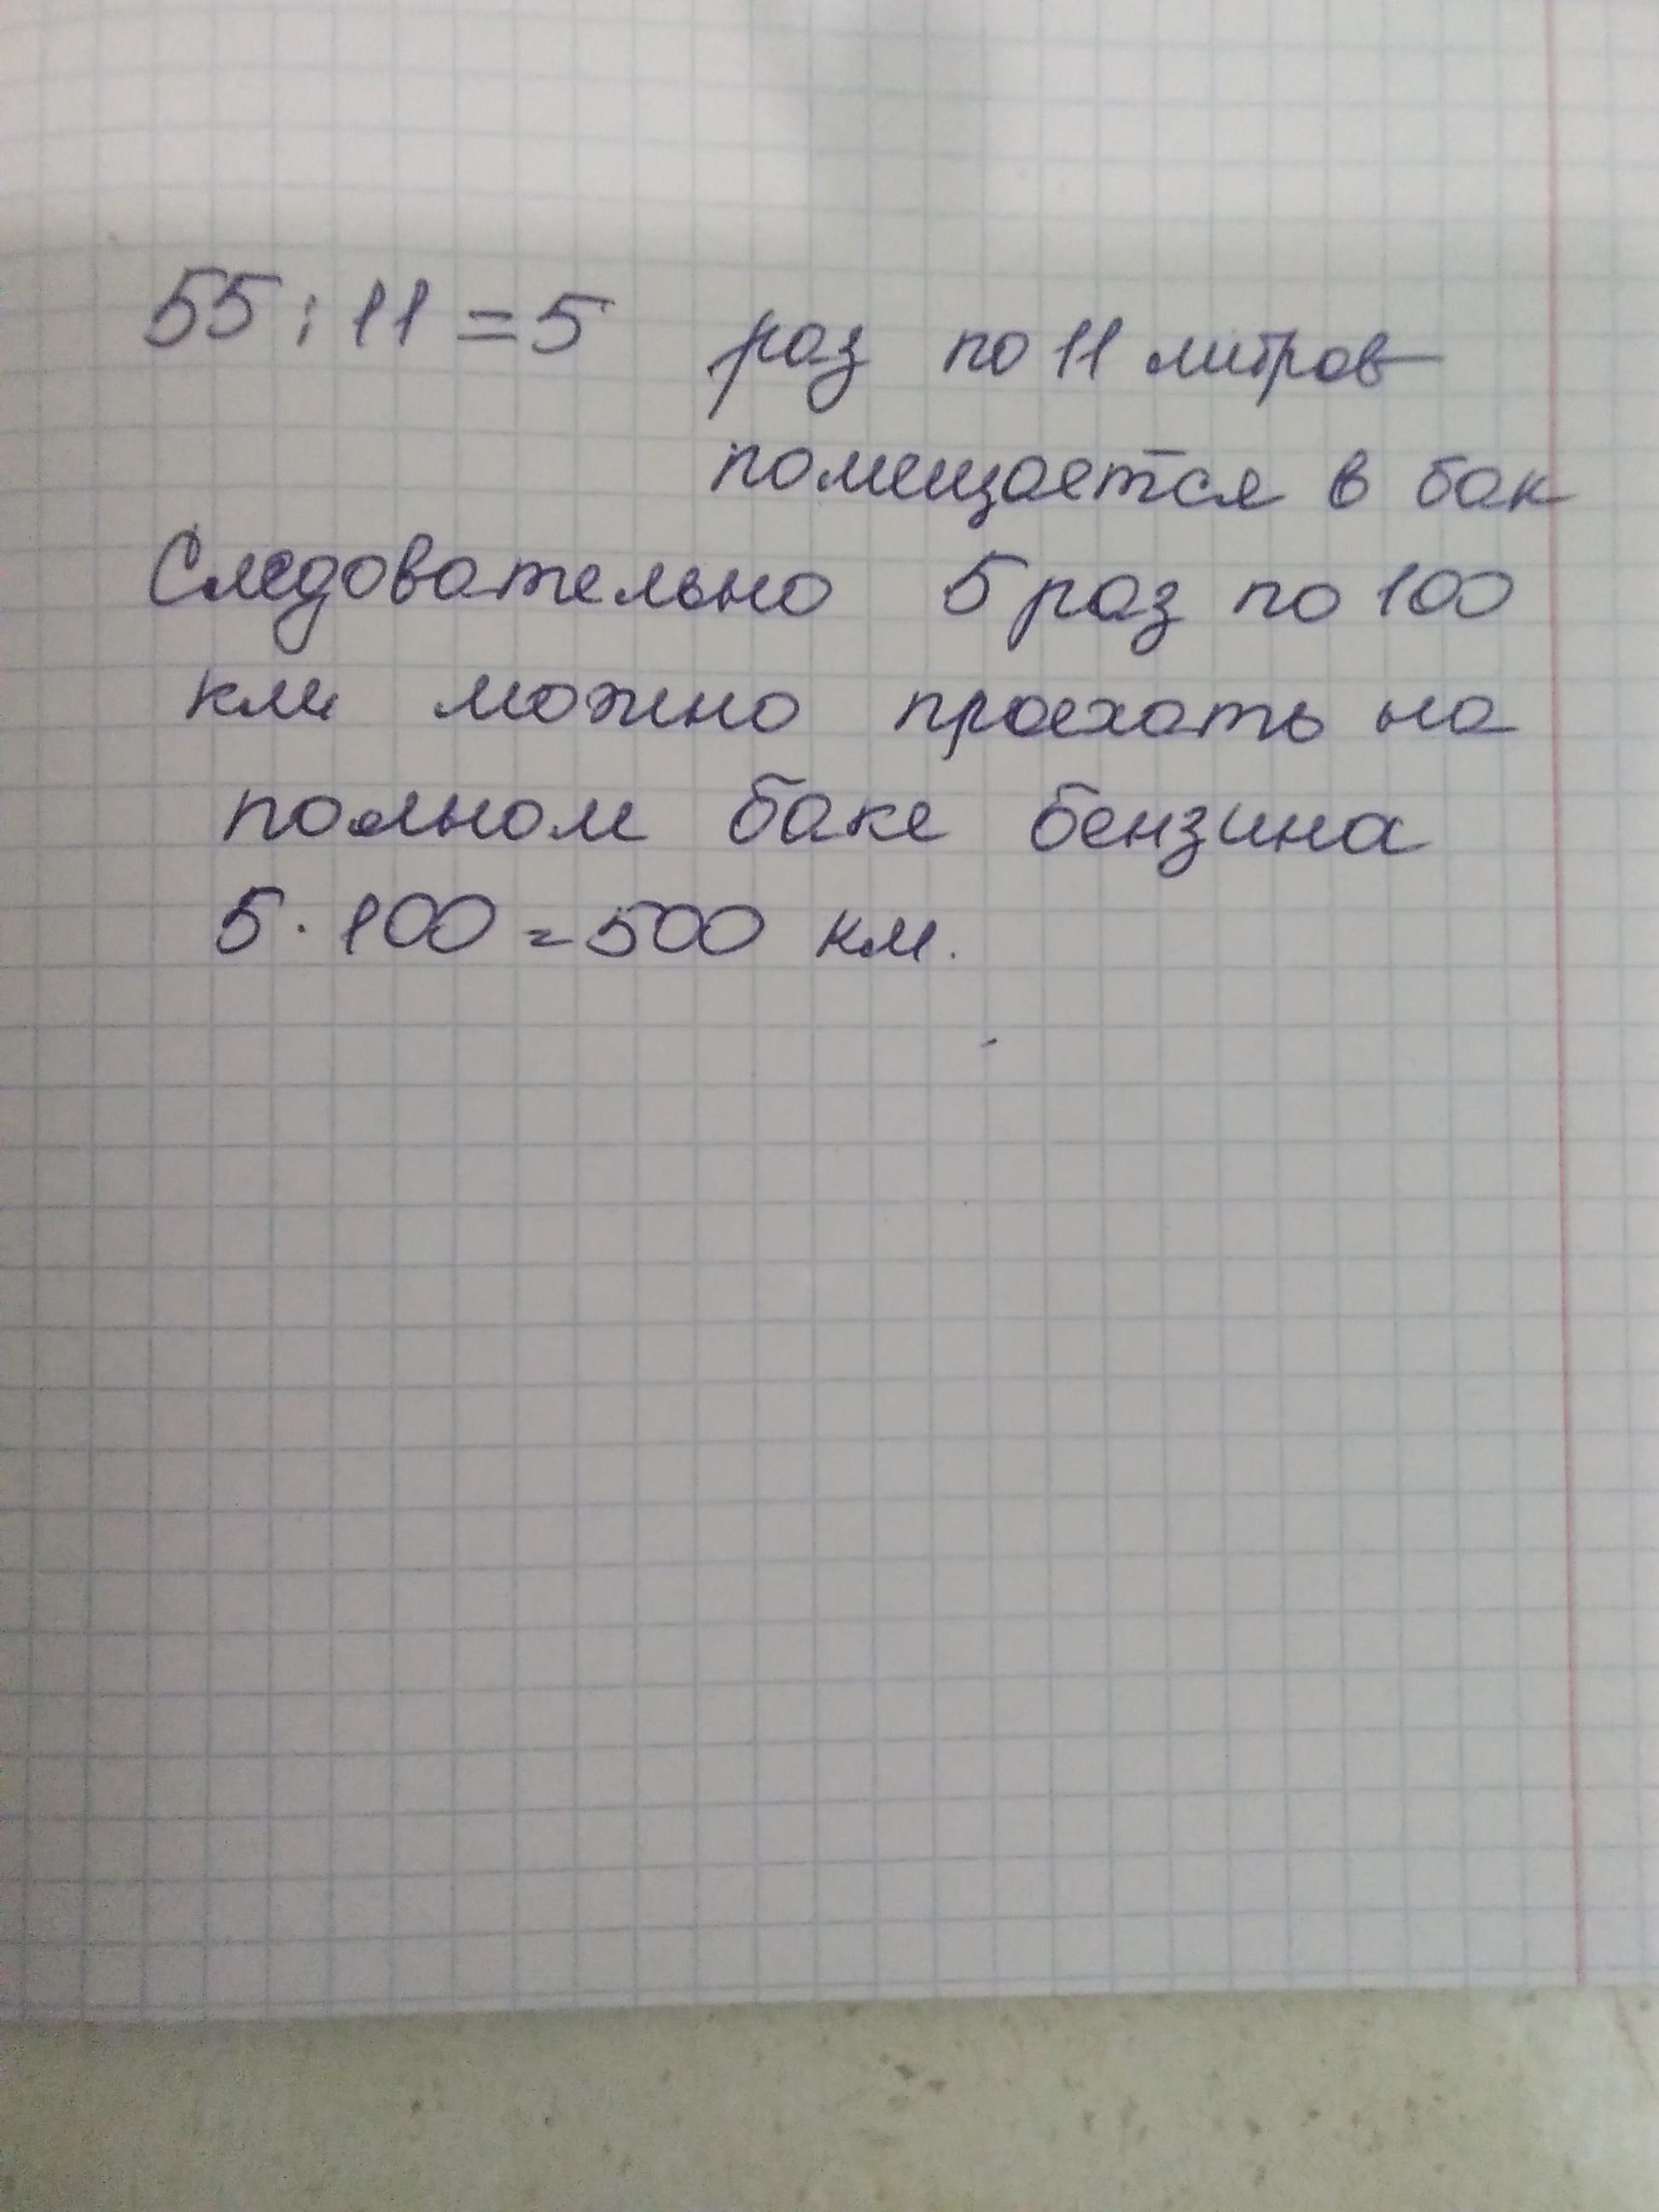 55 : 11 = 5 раз по 11 литров
помещается в бак
Следовательно 5 раз по 100
км можно проехать на
полном баке бензина
5 · 100 = 500 км.